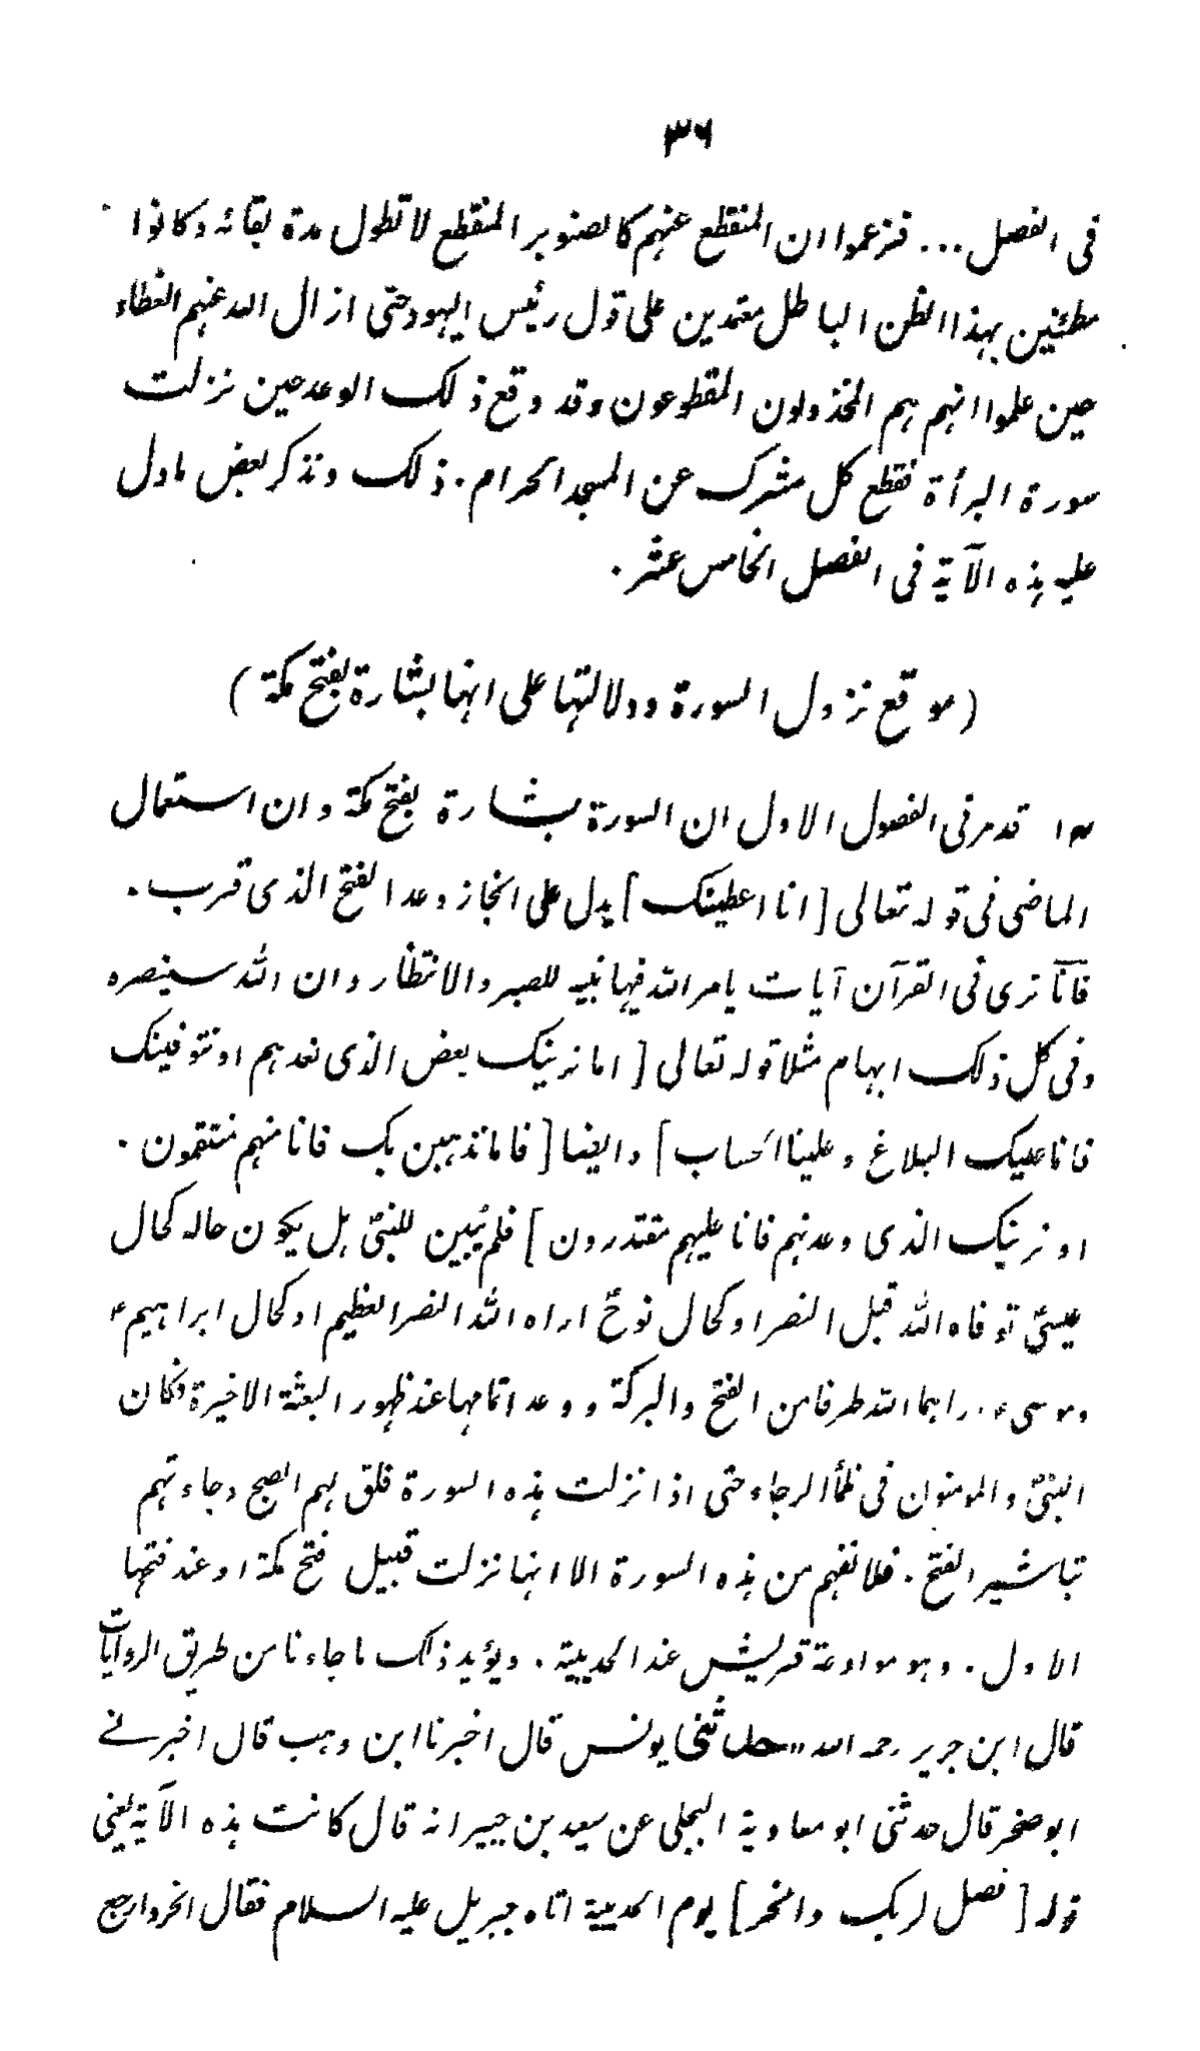 ٣٦
فى الفصل ... فزعموا ان المنقطع عنهم كالصنوبر المنقطع لا تطول مدة بقائه وكانوا
مطمئنين بهذا الظن الباطل معتمدين على قول رئيس اليهود حتى ازال الله عنهم الغطاء
حين علموا انهم هم المخذولون المقطوعون وقد وقع ذلك الوعد حين نزلت
سورة البرأة فقطع كل مشرك عن المسجد الحرام. ذلك ونذكر بعض ما دل
عليه هذه الآية فى الفصل الخامس عشر.
(موقع نزول السورة ودلالتها على انها بشارة بفتح مكة)
١٣ قد مر فى الفصول الاول ان السورة بشارة بفتح مكة وان استعمال
الماضى فى قوله تعالى [انا اعطينك] يدل على انجاز وعد الفتح الذى قرب.
فانا نرى فى القرآن آيات يامر الله فيها نبيه للصبر والانتظار وان الله سينصره
وفى كل ذلك ابهام مثلا قوله تعالى [اما نرينك بعض الذى نعدهم او نتوفينك
فانما عليك البلاغ وعلينا الحساب] وايضا [فاما نذهبن بك فانا منهم منتقمون.
او نرينك الذى وعدنهم فانا عليهم مقتدرون] فلم يُبين للنبىؐ هل يكون حاله كحال
عيسىؑ توفاه الله قبل النصر او كحال نوحؑ اراه الله النصر العظيم او كحال ابراهيمؑ
وموسىؑ. راهما الله طرفا من الفتح والبركة ووعد اتمامها عند ظهور البعثة الاخيرة فكان
النبىؐ والمومنون فى ظمأ الرجاء حتى اذا نزلت هذه السورة فلق لهم الصبح وجاءتهم
تباشير الفتح. فلا نفهم من هذه السورة الا انها نزلت قبيل فتح مكة او عند فتحها
الاول. وهو موادعة قريش عند الحديبية. ويؤيد ذلك ما جاءنا من طريق الروايات
قال ابن جرير رحمه الله "حدثنى يونس قال اخبرنا ابن وهب قال اخبرنى
ابو صخر قال حدثنى ابو معاوية البجلى عن سعيد بن جبير انه قال كانت هذه الآية يعنى
قوله [فصل لربك وانحر] يوم الحديبية اتاه جبريل عليه السلام فقال انحر وارجع